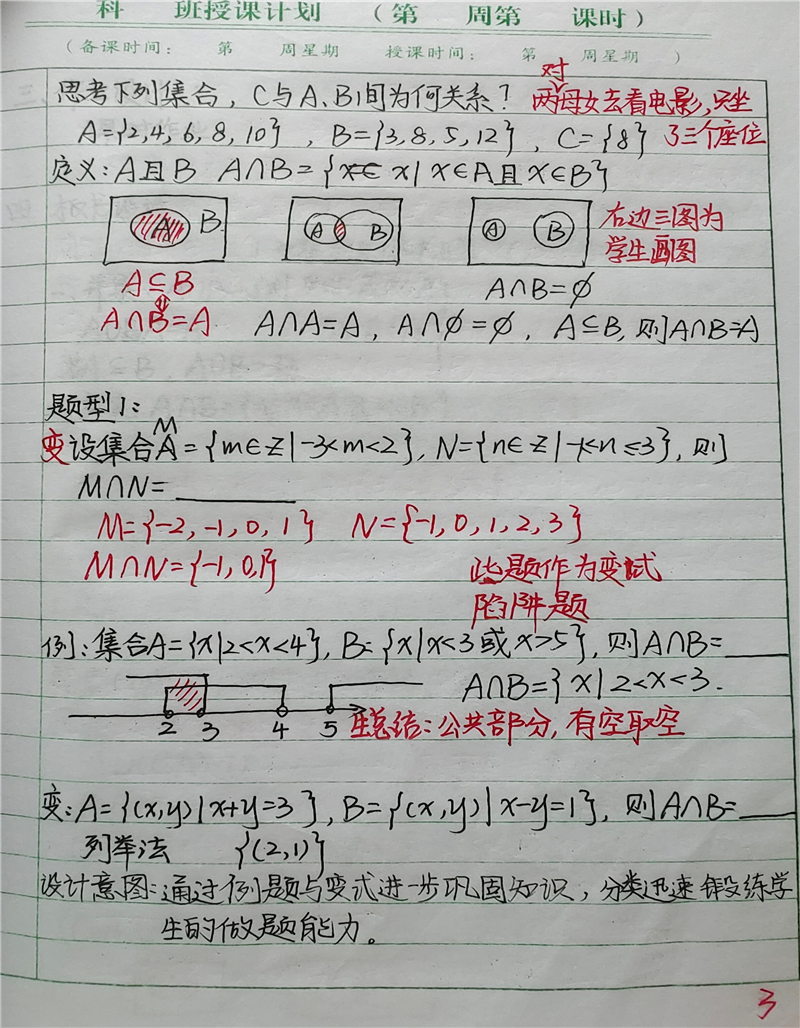 科 班授课计划 （第 周第 课时）
（备课时间： 第 周星期 授课时间： 第 周星期 ）
思考下列集合，C与A、B间为何关系？ 两对母女去看电影，只坐
A={2,4,6,8,10}，B={3,8,5,12}，C={8} 了三个座位
定义：A且B A∩B={x∈ x|x∈A且x∈B}
A B A B A B 右边三图为
学生画图
A⊆B A∩B=∅
⇕
A∩B=A A∩A=A，A∩∅=∅，A⊆B，则A∩B=A
题型1：
变设集合M A={m∈Z|-3<m<2}，N={n∈Z|-1≤n≤3}，则
M∩N=______
M={-2,-1,0,1} N={-1,0,1,2,3}
M∩N={-1,0,1} 此题作为变试
陷阱题
例：集合A={x|2<x<4}，B={x|x<3或x>5}，则A∩B=____
A∩B={x|2<x<3.
2 3 4 5 生总结：公共部分，有空取空
变：A={(x,y)|x+y=3}，B={(x,y)|x-y=1}，则A∩B=___
列举法 {(2,1)}
设计意图：通过例题与变式进一步巩固知识，分类迅速锻练学
生的做题能力。
3